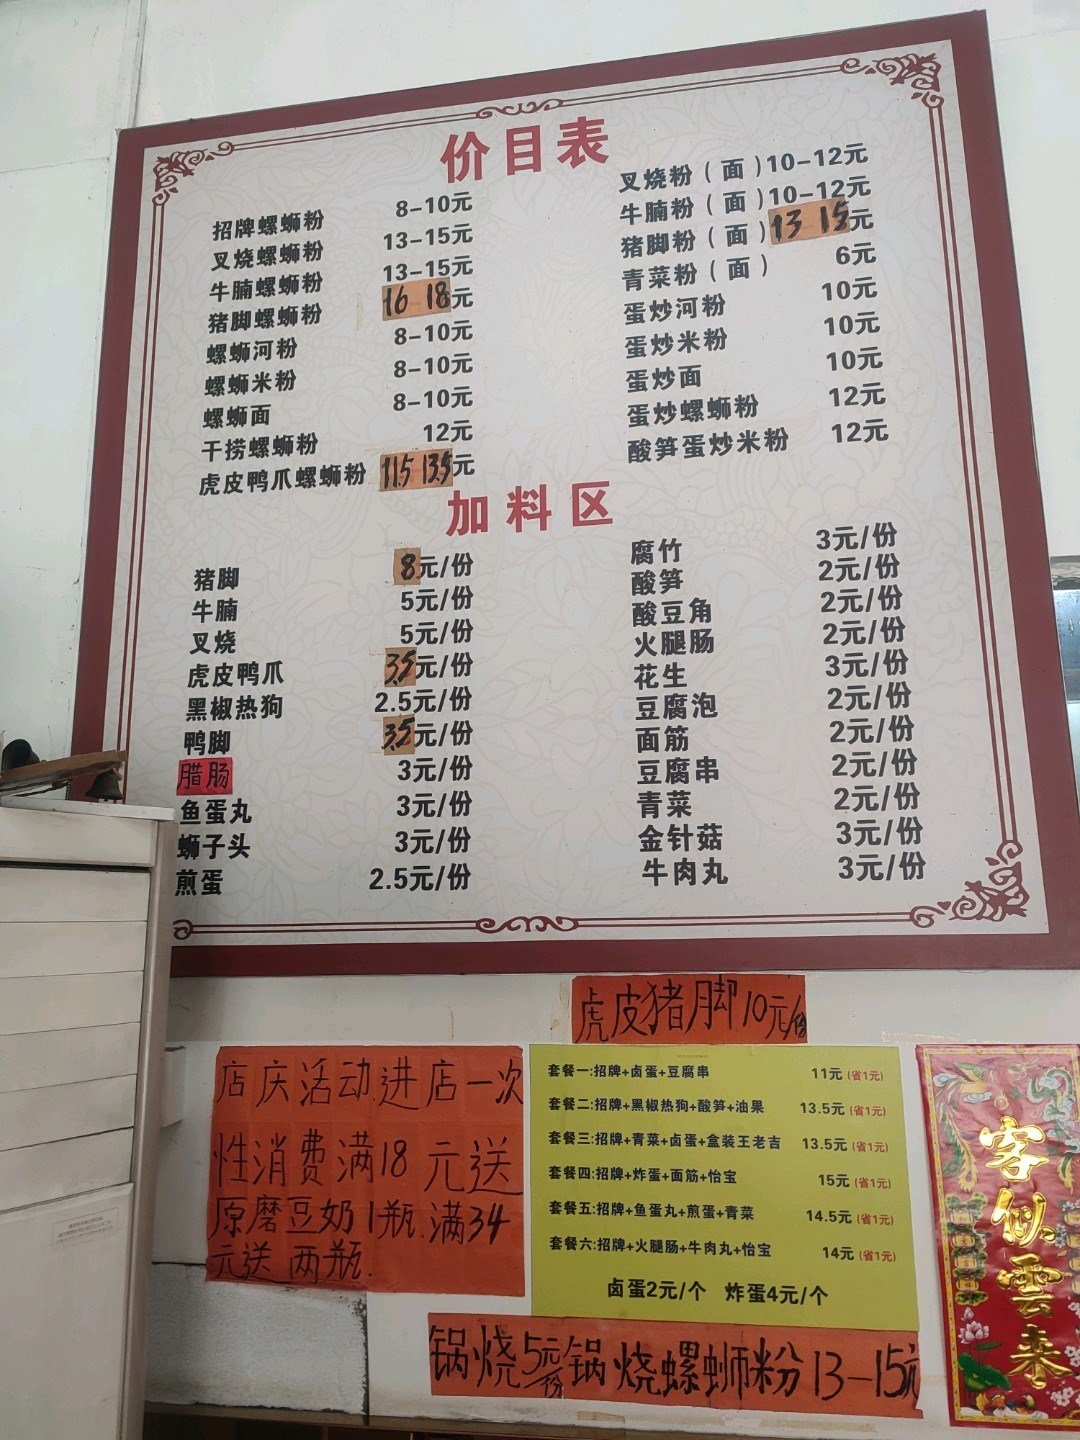 价目表
招牌螺蛳粉 8-10元
叉烧螺蛳粉 13-15元
牛腩螺蛳粉 13-15元
猪脚螺蛳粉 16 18元
螺蛳河粉 8-10元
螺蛳米粉 8-10元
螺蛳面 8-10元
干捞螺蛳粉 12元
虎皮鸭爪螺蛳粉 11.5 13.5元
叉烧粉(面) 10-12元
牛腩粉(面) 10-12元
猪脚粉(面) 13 15元
青菜粉(面) 6元
蛋炒河粉 10元
蛋炒米粉 10元
蛋炒面 10元
蛋炒螺蛳粉 12元
酸笋蛋炒米粉 12元
加料区
猪脚 8元/份
牛腩 5元/份
叉烧 5元/份
虎皮鸭爪 3.5元/份
黑椒热狗 2.5元/份
鸭脚 3.5元/份
腊肠 3元/份
鱼蛋丸 3元/份
蛳子头 3元/份
煎蛋 2.5元/份
腐竹 3元/份
酸笋 2元/份
酸豆角 2元/份
火腿肠 2元/份
花生 3元/份
豆腐泡 2元/份
面筋 2元/份
豆腐串 2元/份
青菜 2元/份
金针菇 3元/份
牛肉丸 3元/份
虎皮猪脚10元/份
店庆活动.进店一次
性消费满18元送
原磨豆奶1瓶.满34
元送两瓶.
套餐一:招牌+卤蛋+豆腐串 11元(省1元)
套餐二:招牌+黑椒热狗+酸笋+油果 13.5元(省1元)
套餐三:招牌+青菜+卤蛋+盒装王老吉 13.5元(省1元)
套餐四:招牌+炸蛋+面筋+怡宝 15元(省1元)
套餐五:招牌+鱼蛋丸+煎蛋+青菜 14.5元(省1元)
套餐六:招牌+火腿肠+牛肉丸+怡宝 14元(省1元)
卤蛋2元/个 炸蛋4元/个
锅烧5元/份锅烧螺蛳粉13-15元
客似雲来